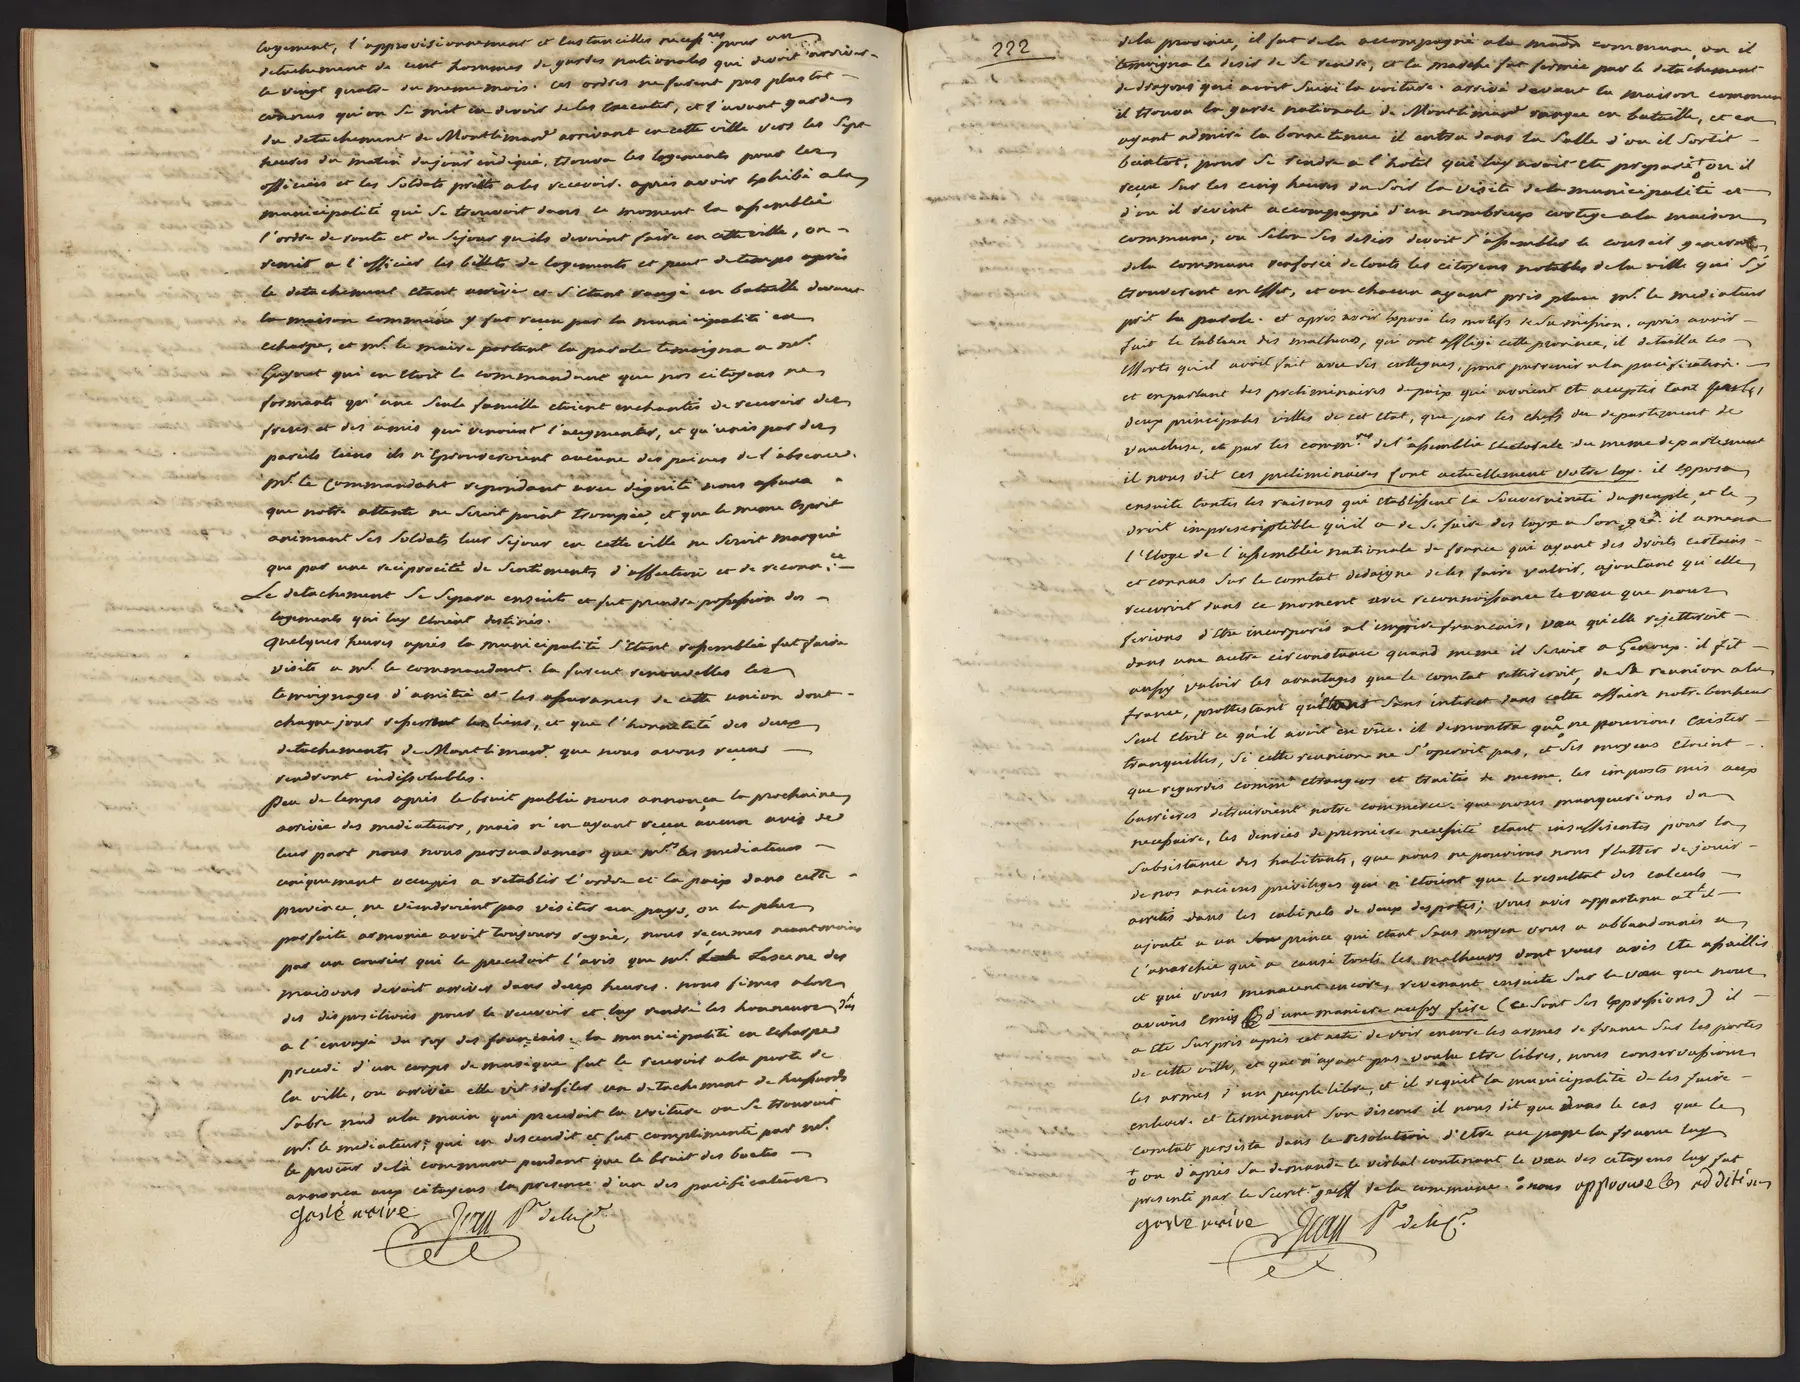 logement, l'approvisionnement et les tancilles necess.res pour un
detachement de cent hommes de gardes nationales qui devoit arriver
le vingt quatre du meme mois. ces ordres ne furent pas plus tot
connus qu'on se mit en devoir de les executer, et l'avant garde
du detachement de Montelimard arrivant en cette ville vers les sept
heures du matin du jour indiqué, trouva les logements pour les
officiers et les soldats prêts a les recevoir. après avoir exhibé a la
municipalité qui se trouvoit dans ce moment la assemblée
l'ordre de route et du sejour qu'ils devoient faire en cette ville, on
remit a l'officier les billets de logements et peut de temps après
le detachement etant arrivé et s'etant rangé en bataille devant
la maison commune y fut reçu par la municipalité en
echarpe, et mr. le maire portant la parole temoigna a mr.
qui en etoit le commandant que nos citoyens ne
formants qu'une seule famille etoient enchantés de recevoir des
freres et des amis qui venoient l'augmenter, et qu'unis par des
pareils liens ils n'eprouveroient aucune des peines de l'absence.
mr. le commandant repondant avec dignité nous assura
que notre attente ne seroit point trompée, et que le meme esprit
animant ses soldats leur sejour en cette ville ne seroit marqué
que par une reciprocité de sentiments d'affection et de reconn.ce
Le detachement se separa ensuite et fut prendre possession des
logements qui luy etoient destinés.
quelques heures après la municipalité s'etant rassemblée fut faire
visite a mr. le commandant. la furent renouvelles les
temoignages d'amitié et les assurances de cette union dont
chaque jour resserrent les liens, et que l'honneteté des deux
detachements de Montelimard que nous avons reçus
rendront indissolubles.
Peu de temps après le bruit public nous annonça la prochaine
arrivée des mediateurs, mais n'en ayant reçu aucun avis de
leur part nous nous persuadames que mrs. les mediateurs
uniquement occupés a retablir l'ordre et la paix dans cette
province ne viendroient pas visiter un pays, ou la plus
parfaite armonie avoit toujours regné, nous reçumes neantmoins
par un courier qui le precedoit l'avis que mr. Lescene des
maisons devoit arriver dans deux heures. nous fimes alors
des dispositions pour le recevoir et luy rendre les honneurs dûs
a l'envoyé du roy des français. la municipalité en echarpe
precedé d'un corps de musique fut le recevoir a la porte de
la ville, ou arrivée elle vit defiler un detachement de hussards
sabre nud a la main qui precedoit la voiture ou se trouvoit
mr. le mediateur; qui en descendit et fut complimenté par mr.
le procur de la commune pendant que le bruit des boetes
annonça aux citoyens la presence d'un des pacificateurs
maire Jean
222
de la province, il fut de la accompagné a la maison commune ou il
temoigna le desir de se rendre, et la marche fut formée par le detachement
de dragons qui avoit suivi la voiture. arrivé devant la maison commune
il trouva la garde nationale de Montelimard rangée en bataille, et en
ayant admiré la bonne tenue il entra dans la salle d'ou il sortit
bientot, pour se rendre a l'hotel qui luy avoit eté preparé ou il
reçut sur les cinq heures du soir la visite de la municipalité et
d'ou il revint accompagné d'un nombreux cortege a la maison
commune, ou selon ses desirs devoit s'assembler le conseil general
de la commune renforcé de touts les citoyens notables de la ville qui s'y
trouverent en effet, et ou chacun ayant pris place mr. le mediateur
prit la parole. et après avoir exposé les motifs de sa mission, après avoir
fait le tableau des malheurs, qui ont affligé cette province, il detailla les
efforts qu'il avoit fait avec ses collegues, pour parvenir a la pacification.
et en parlant des preliminaires de paix qui avoient eté acceptés tant par les
deux principales villes de cet etat, que par les chefs du departement de
vaucluse, et par les comm.res de l'assemblée electorale du meme departement
il nous dit ces preliminaires font actuellement votre loy. il exposa
ensuite toutes les raisons qui etablissent la souveraineté du peuple, et le
droit imprescriptible qu'il a de se faire des loyx a son gré. il amena
l'eloge de l'assemblée nationale de france qui ayant des droits certains
et connus sur le comtat dedaigne de les faire valoir, ajoutant qu'elle
recevroit dans ce moment avec reconnoissance le vœu que nous
ferions d'etre incorporés a l'empire français, vœu qu'elle rejetteroit
dans une autre circonstance quand meme il seroit a genoux. il fit
aussy valoir les avantages que le comtat retireroit, de sa reunion a la
france, protestant qu'etant sans interet dans cette affaire notre bonheur
seul etoit ce qu'il avoit en vüe. il demontra que ne pouvions exister
tranquilles, si cette reunion ne s'operoit pas, et ses moyens etoient
que regardés comme etrangers et traités de meme, les imposts mis aux
barrieres detruiroient notre commerce. que nous manquerions du
necessaire, les denrées de premiere necessité etant insuffisentes pour la
subsistance des habitants, que nous ne pouvions nous flatter de jouir
de nos anciens privileges qui n'etoient que le resultat des calculs
arretés dans les cabinets de deux despotes; vous avés appartenu at'il
ajouté a un prince qui etant sans moyen vous a abbandonnés a
l'anarchie qui a causé touts les malheurs dont vous avés eté assaillis
et qui vous menacent encore, revenant ensuite sur le vœu que nous
avions emis d'une maniere aussy fiere (ce sont ses expressions) il
a eté surpris après cet acte de voir encore les armes de france sur les portes
de cette ville, et que n'ayant pas voulu etre libres, nous conservassions
les armes d'un peuple libre, et il requit la municipalité de les faire
enlever. et terminant son discour il nous dit que dans le cas que le
comtat persista dans la resolution d'etre au pape la france luy
ou d'après sa demande le verbal contenant le vœu des citoyens luy fut
presenté par le secret. greff. de la commune. nous approuve les additions
maire Jean